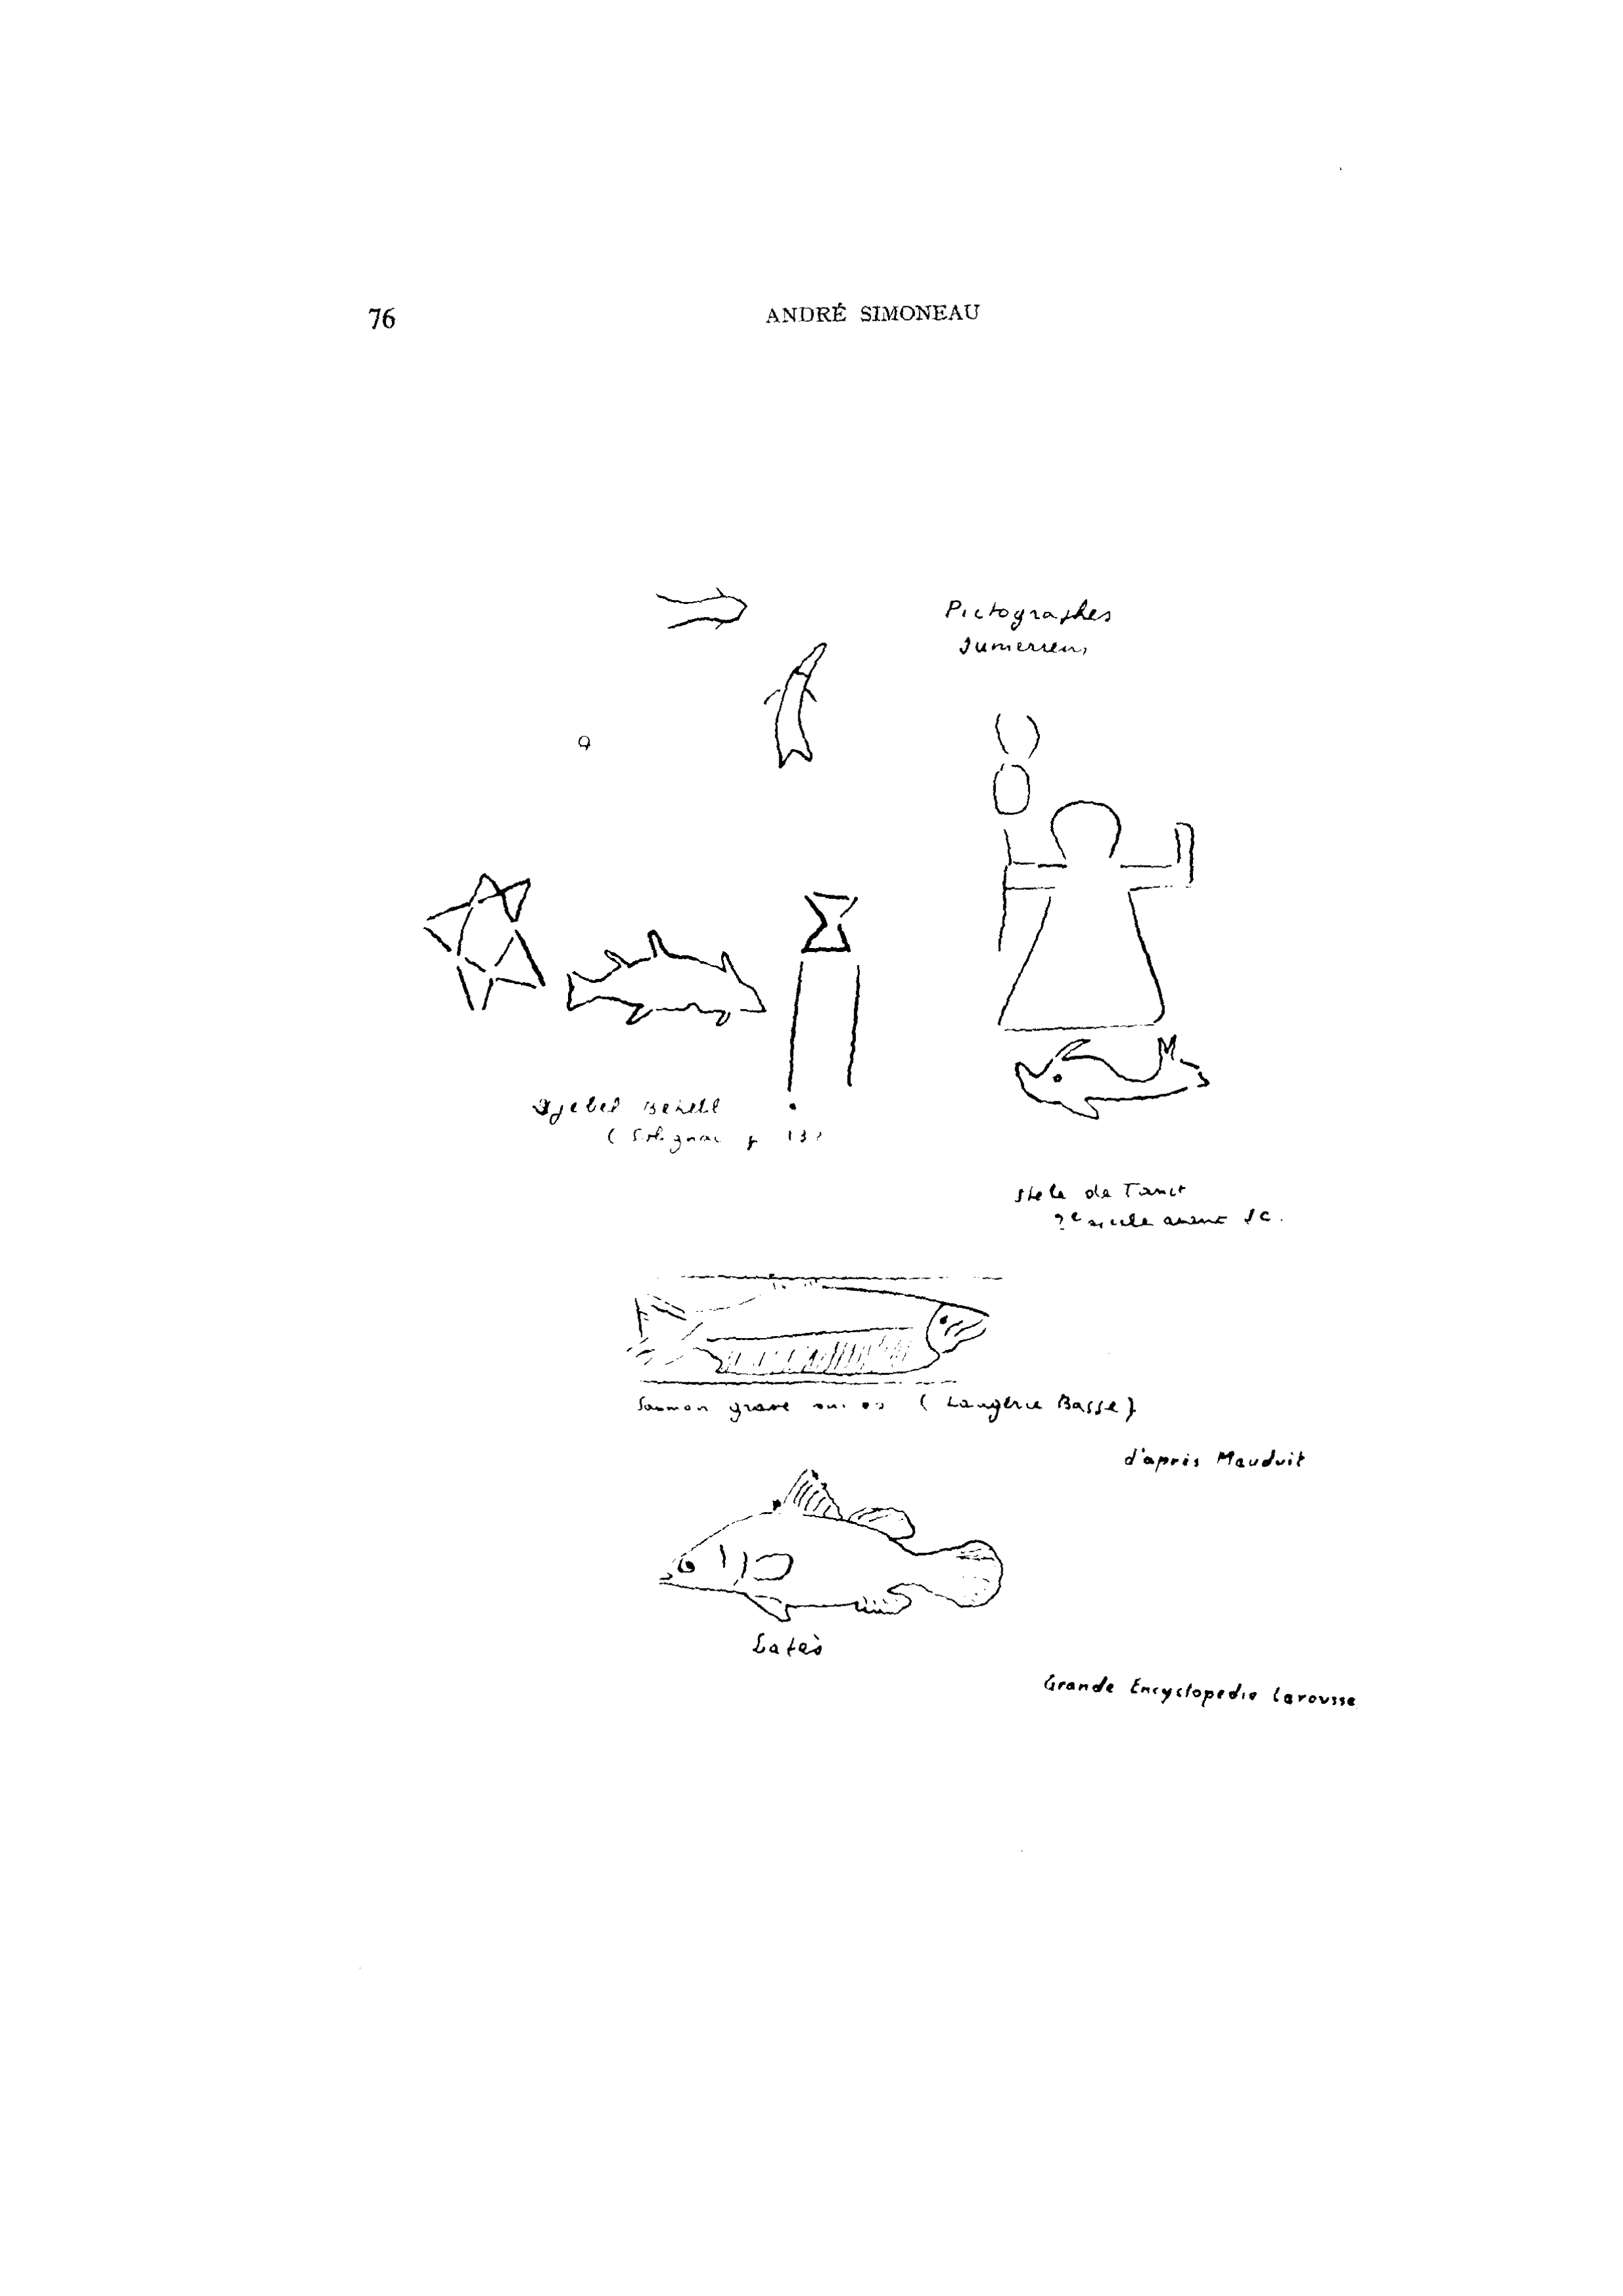 76
ANDRÉ SIMONEAU
Pictographes
Sumeriens
Djebel
( Solignac p 13
Stele de Tanit
2e siecle avant JC.
Saumon gravé sur os ( Laugerie Basse)
d'après Mauduit
Latès
Grande Encyclopedie Larousse